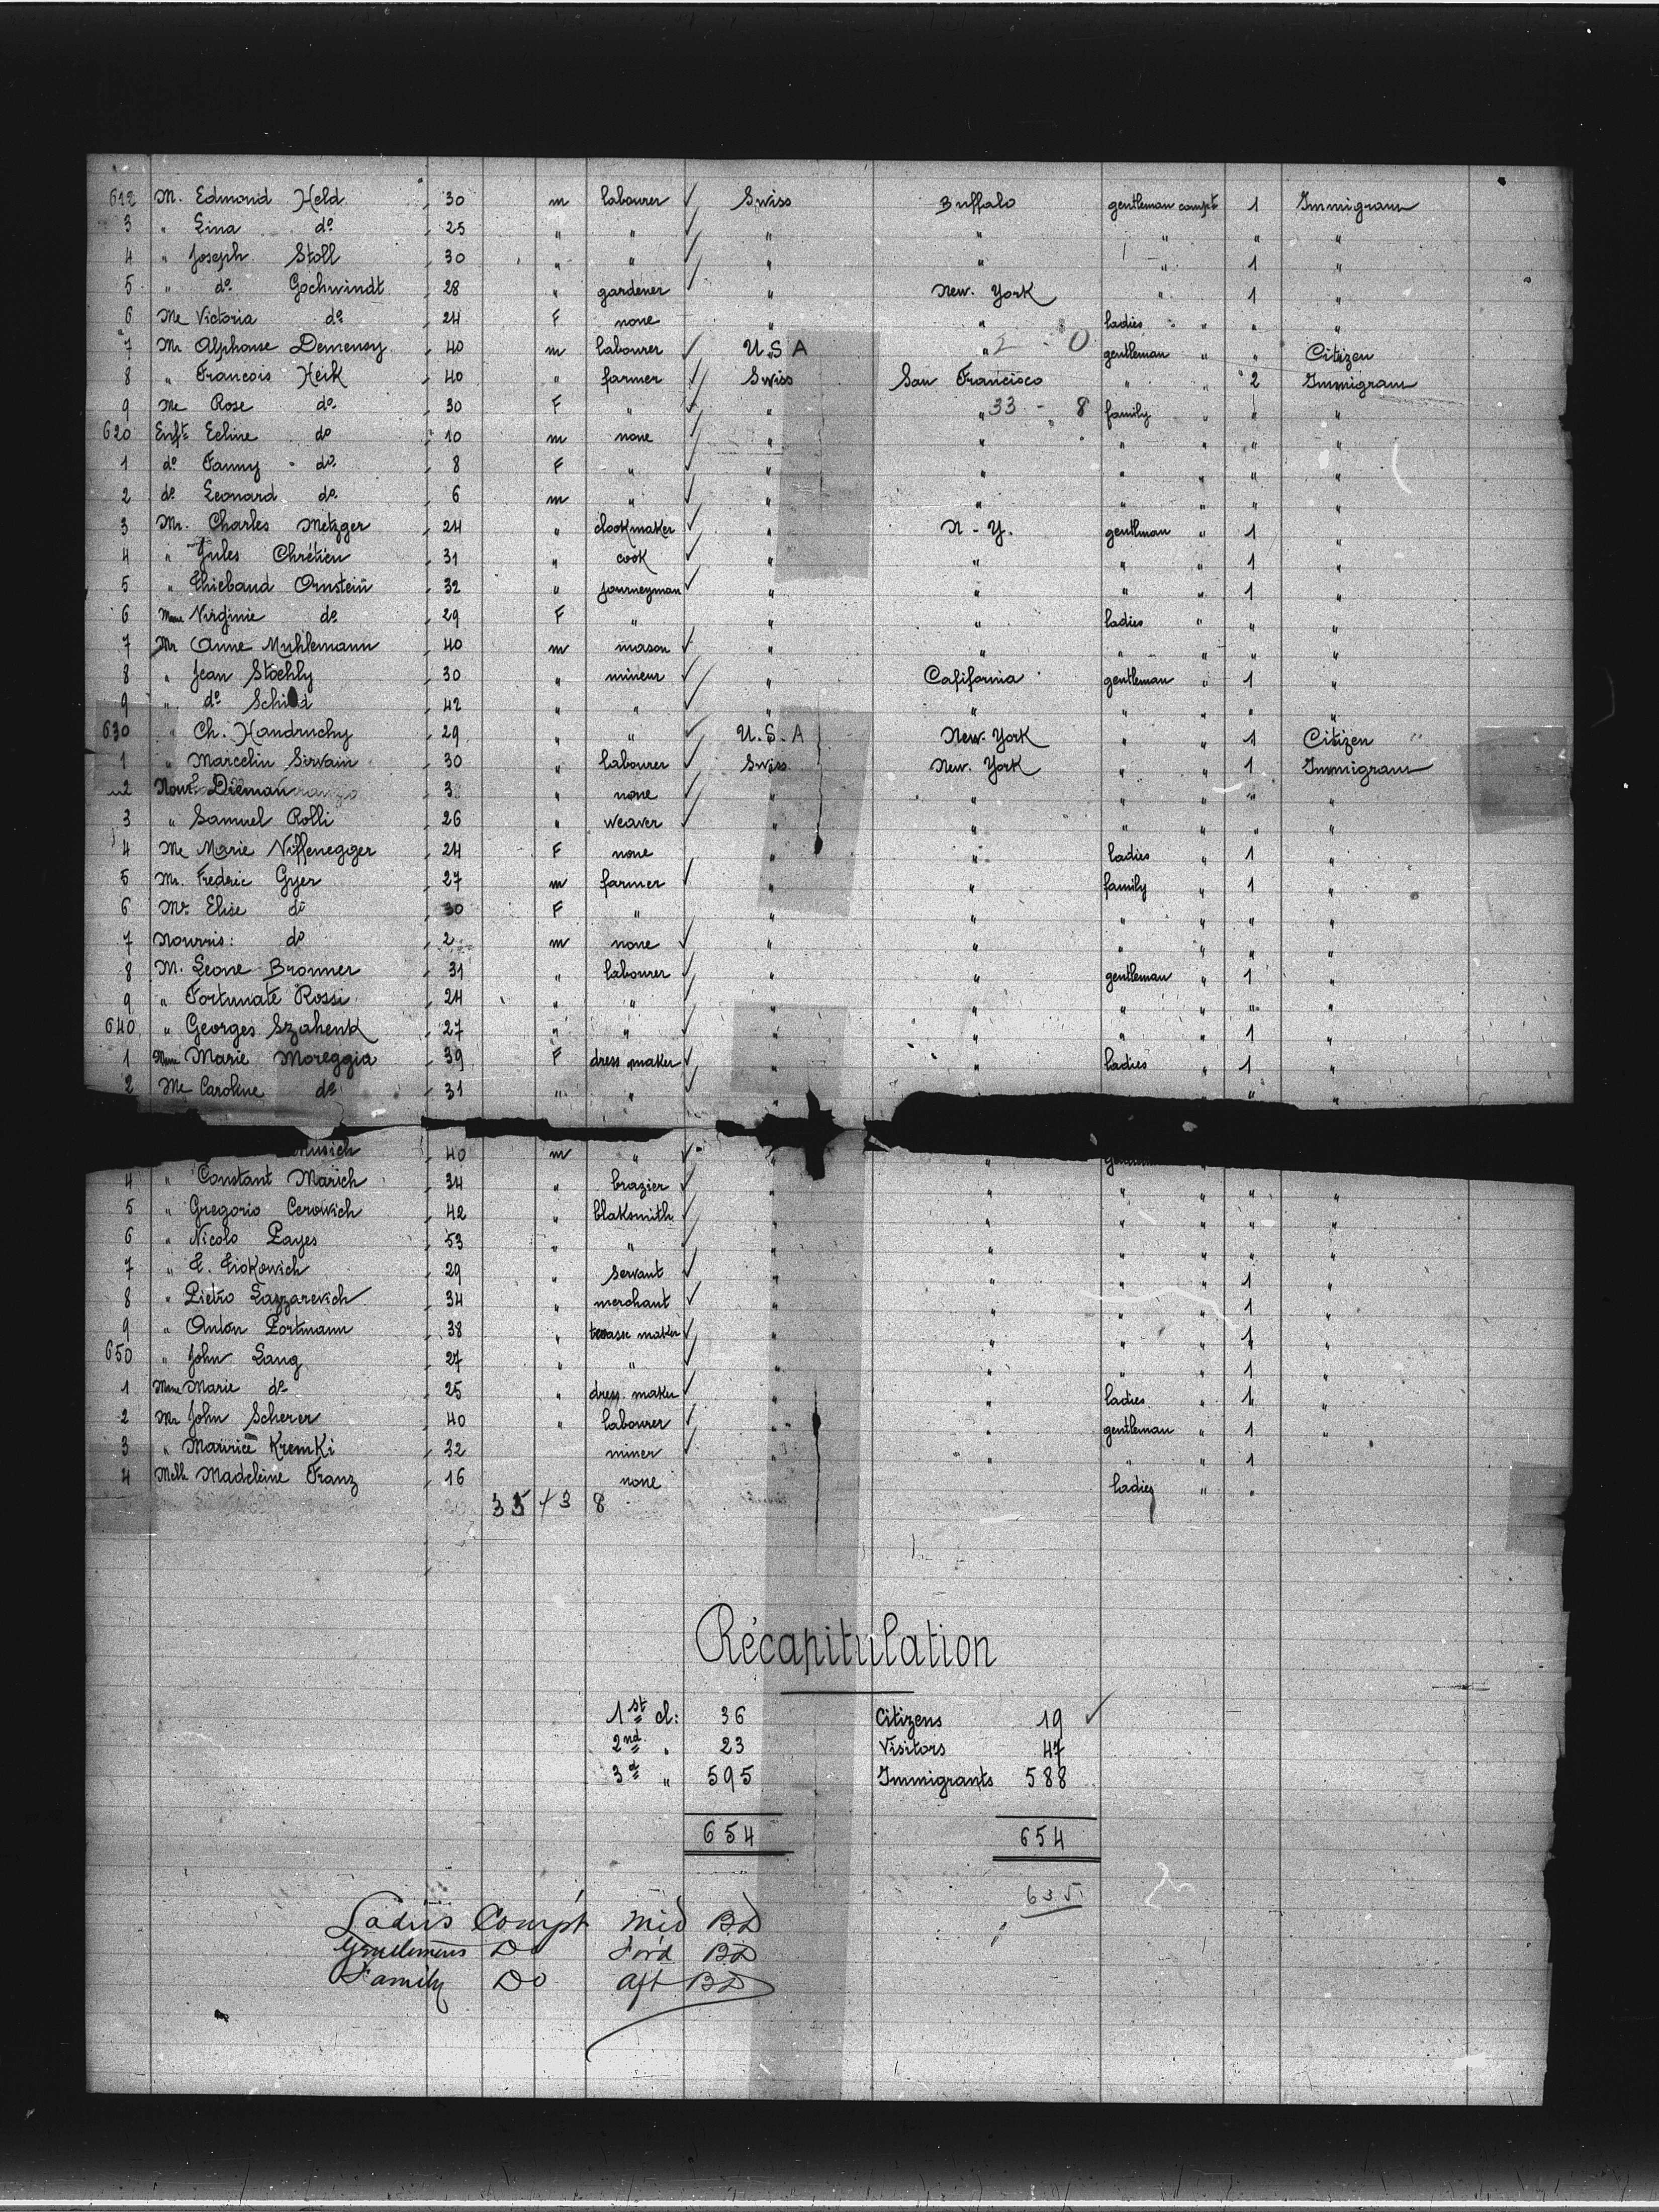 612 M. Edmond Held 30 m labourer ✓ Swiss Buffalo gentleman compt 1 Immigram
3 " Lina do 25 " " ✓ " " " " "
4 " Joseph Stoll 30 " " ✓ " " " 1 "
5 " do Gschwindt 28 " gardener ✓ " New-York " 1 "
6 Me Victoria do 24 F none " " ladies " " "
7 Mr Alphonse Demensy 40 m labourer ✓ U.S.A " gentleman " " Citizen
8 " Francois Heik 40 " farmer ✓ Swiss San Francisco " " 2 Immigram
9 Me Rose do 30 F " ✓ " " 33 - 8 family " " "
620 Enft Eline do 10 m none ✓ " " " " " "
1 do Fanny do 8 F " ✓ " " " " " "
2 do Leonard do 6 m " ✓ " " " " " "
3 Mr. Charles Metzger 24 " clookmaker ✓ " N-Y. gentleman " 1 "
4 " Jules Chrétien 31 " cook ✓ " " " " 1 "
5 " Thiebaud Ornstein 32 " journeyman ✓ " " " " 1 "
6 Mme Virginie do 29 F " " " ladies " " "
7 Mr Anne Muhlemann 40 m mason ✓ " " " " " "
8 " Jean Stoehly 30 " mineur ✓ " California gentleman " 1 "
9 " do Schild 42 " " ✓ " " " " " "
630 " Ch. Handruchy 29 " " ✓ U.S.A New-York " " 1 Citizen
1 " Marcelin Sirvain 30 " labourer ✓ Swiss New-York " " 1 Immigram
2 Dieman 3 " none ✓ " " " " " "
3 " Samuel Rolli 26 " weaver ✓ " " " " " "
4 Me Marie Niffenegger 24 F none " " ladies " 1 "
5 Mr. Frederic Gyer 27 m farmer ✓ " " family " 1 "
6 Me Elise do 30 F " " " " " " "
7 Nourris: do 2 m none ✓ " " " " " "
8 M. Leone Bronner 31 " labourer ✓ " " gentleman " 1 "
9 " Fortunate Rossi 24 " " ✓ " " " " " "
640 " Georges Szahenk 27 " " ✓ " " " " 1 "
1 Mme Marie Moreggia 39 F dress maker ✓ " " ladies " 1 "
2 Me Caroline do 31 " " ✓ " " "
40 m " ✓ " "
4 " Constant Marich 34 " brazier ✓ " " " " " "
5 " Gregorio Cerovich 42 " blaksmith ✓ " " " " " "
6 " Nicolo Payes 53 " " ✓ " " " " " "
7 " E. Liskowich 29 " servant ✓ " " " " 1 "
8 " Pietro Lazzarevich 34 " merchant ✓ " " " " 1 "
9 " Anton Portmann 38 " maker ✓ " " " " 1 "
650 " John Lang 27 " " ✓ " " " " 1 "
1 Mme Marie do 25 " dress maker ✓ " " ladies " 1 "
2 Mr John Scherer 40 " labourer ✓ " " gentleman " 1 "
3 " Maurice Kremki 32 miner ✓ " " " " 1
4 Melle Madeleine Franz 16 none ladies " "
35 +3 8
Récapitulation
1st cl: 36 Citizens 19 ✓
2nd " 23 Visitors 47
3d " 595 Immigrants 588
654 654
635
Ladies Compt Mid BD
Gentlemens Do For'd BD
Family Do Aft BD